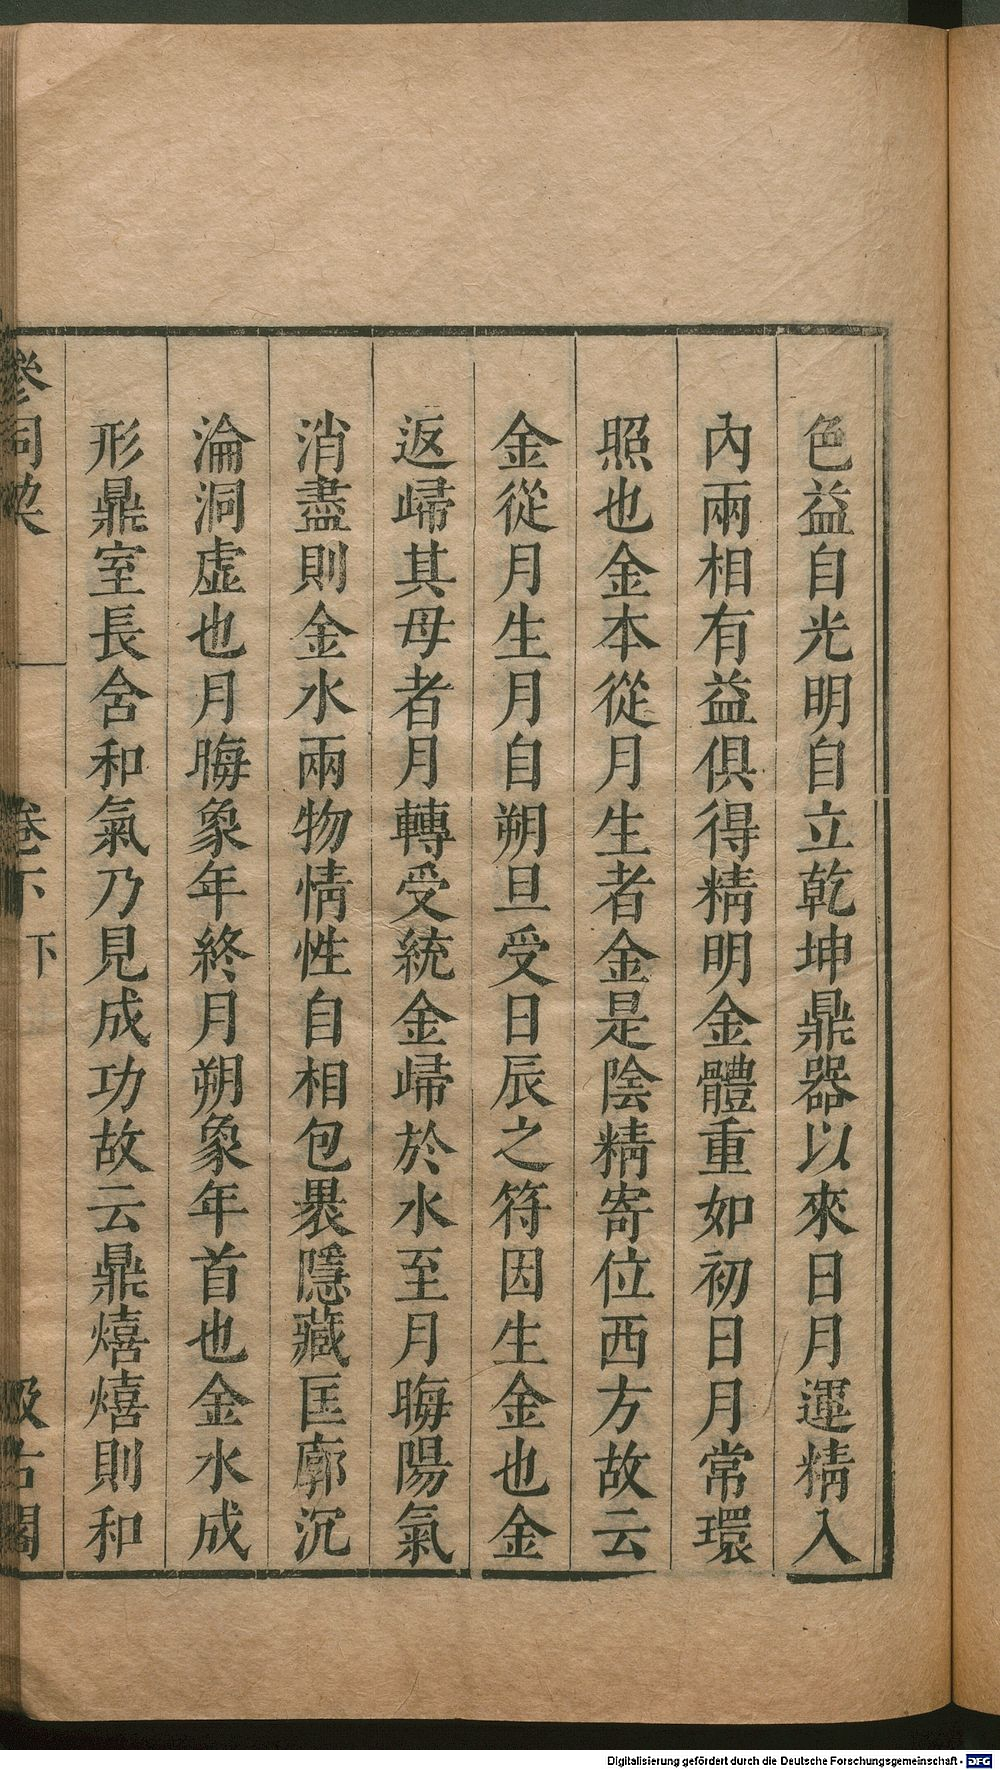 色益自光明自立乾坤鼎器以來日月運精入
內兩相有益俱得精明金體重如初日月常環
照也金本從月生者金是陰精寄位西方故云
金從月生月自朔旦受日辰之符因生金也金
返歸其母者月轉受統金歸於水至月晦陽氣
消盡則金水兩物情性自相包褁隱藏匡廓沉
淪洞虛也月晦象年終月朔象年首也金水成
形鼎室長含和氣乃見成功故云鼎熺熺則和
參同契 卷下 下 汲古閣
Digitalisierung gefördert durch die Deutsche Forschungsgemeinschaft - DFG